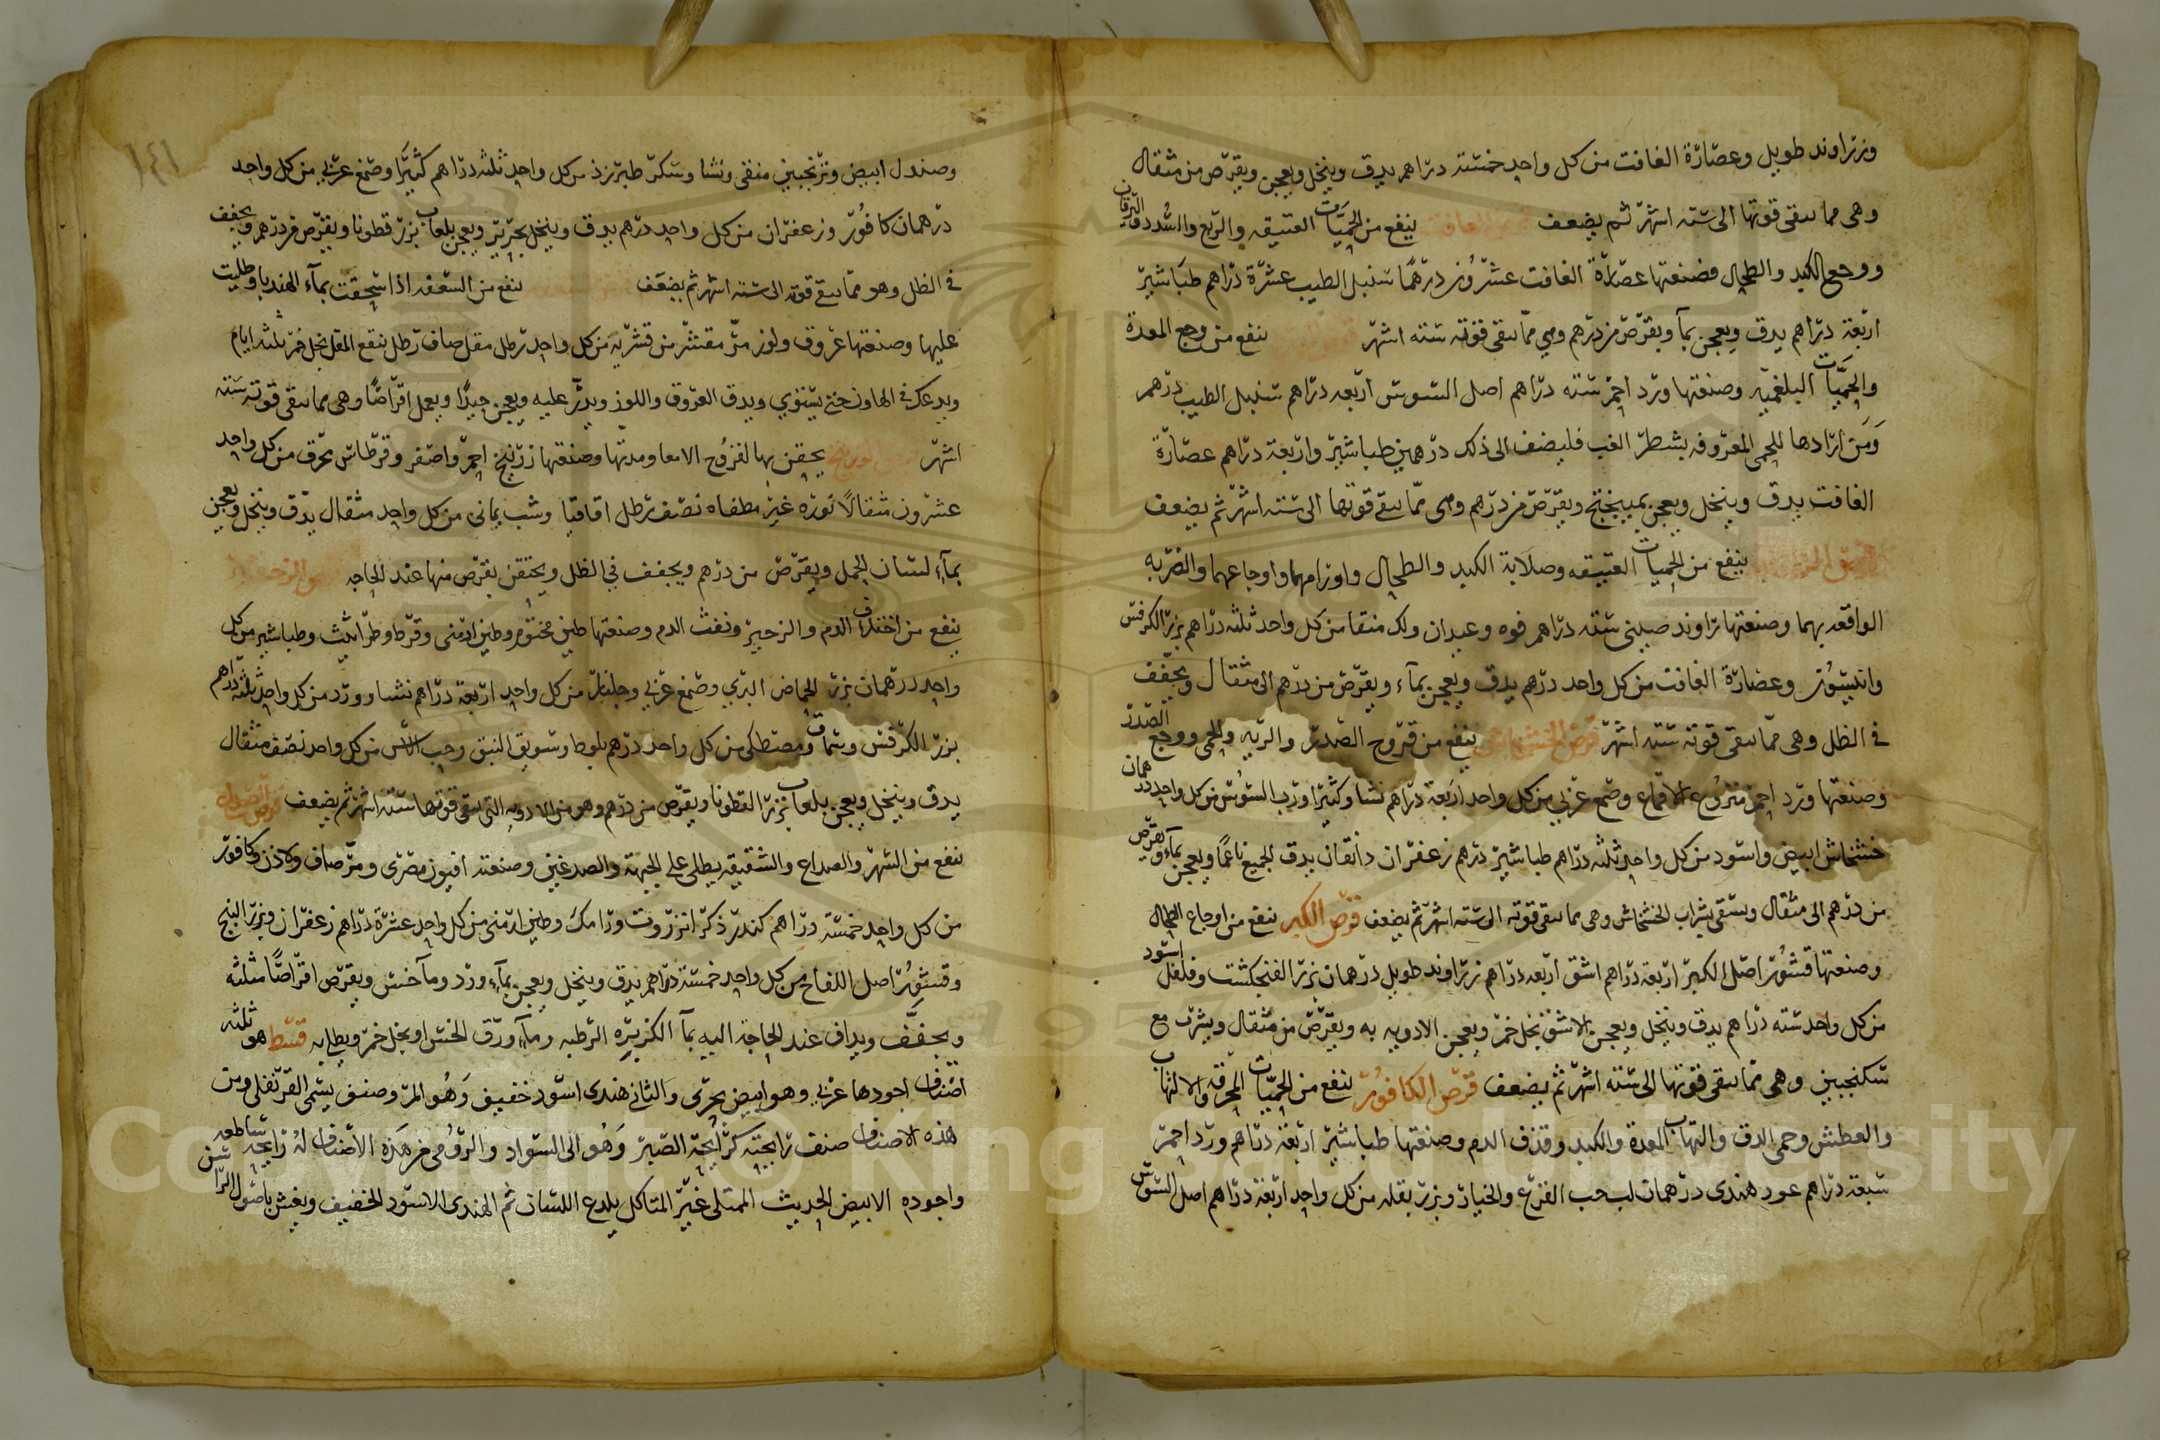 وزراوند طويل وعصارة الغافت من كل واحد خمسة دراهم يدق وينخل ويعجن ويقرص من مثقال
وهى مما تبقى قوتها الى ستة اشهر ثم يضعف قرص الغافت ينفع من الحميات العتيقه والربع والسدد واليرقان
ووجع الكبد والطحال وصنعتها عصارة الغافت عشرون درهما سنبل الطيب عشرة دراهم طباشير
اربعة دراهم يدق ويعجن بمآ ويقرص من درهم وهي مما تبقى قوته سته اشهر ينفع من وجع المعدة
والحميات البلغميه وصنعتها ورد احمر سته دراهم اصل السوس اربعه دراهم سنبل الطيب درهمر
ومن ارادها للحمى المعروفه بشطر الغب فليضف الى ذلك درهمين طباشير واربعة دراهم عصارة
الغافت يدق وينخل ويعجن بميبختج ويقرص من درهم وهى مما تبقى قوتها الى سته اشهر ثم يضعف
ينفع من الحميات العتيقه وصلابة الكبد والطحال واورامهما واوجاعهما والضربه
الواقعه بهما وصنعتها راوند صينى سته دراهم فوه وعيدان ولك منقا من كل واحد ثلثه دراهم بزر الكرفس
وانيسون وعصارة الغافت من كل واحد درهم يدق ويعجن بمآء ويقرص من درهم الى مثقال ويجفف
فى الظل وهى مما تبقى قوته سته اشهر قرص الخشخاش ينفع من قروح الصدر والريه والحمى ووجع الصدر
وصنعتها ورد احمر منزوع الاقماع وصمغ عربي من كل واحد اربعة دراهم نشا وكثيرا ورب السوس من كل واحد درهمان
خشخاش ابيض واسود من كل واحد ثلثه دراهم طباشير درهم زعفران دانقان يدق الجميع ناعما ويعجن بمآء ويقرص
من درهم الى مثقال ويسقى بشراب الخشخاش وهى مما تبقى قوته الى سته اشهر ثم يضعف قرص الكبر ينفع من اوجاع الطحال
وصنعتها قشور اصل الكبر اربعة دراهم اشق اربعه دراهم زراوند طويل درهمان بزر الفنجكشت وفلفل اسود
من كل واحد سته دراهم يدق وينخل ويعجن الاشق بخل خمر ويعجن الادويه به ويقرص من مثقال ويشرب مع
سكنجبين وهى مما تبقى قوتها الى سته اشهر ثم يضعف قرص الكافور ينفع من الحميات المحرقه والالتهاب
والعطش وحمى الدق والتهاب المعدة والكبد وقذف الدم وصنعتها طباشير اربعة دراهم ورد احمر
سبعة دراهم عود هندى درهمان لب حب القرع والخيار وبزر بقله من كل واحد اربعة دراهم اصل السوس
١٤١
وصندل ابيض وترنجبين منقى ونشا وسكر طبرزذ من كل واحد ثلثه دراهم كثيرا وصمغ عربي من كل واحد
درهمان كافور وزعفران من كل واحد درهم يدق وينخل بحرير ويعجن بلعاب بزر قطونا ويقرص من درهم ويجفف
فى الظل وهو مما تبقى قوته الى سته اشهر ثم يضعف ينفع من السعفه اذا سحقت بمآء الهندبا وطليت
عليها وصنعتها عروق ولوز مر مقشر من قشريه من كل واحد رطل مقل صاف رطل ينقع المقل بخل خمر ثلثه ايام
ويدعك فى الهاون حتى يستوي ويدق العروق واللوز ويذر عليه ويعجن جيدا ويعمل اقراصا وهى مما تبقى قوته سته
اشهر يحقن بها لقروح الامعا ومدتها وصنعتها زرنيخ احمر واصفر وقرطاس محرق من كل واحد
عشرون مثقالا نوره غير مطفاه نصف رطل اقاقيا وشب يماني من كل واحد مثقال يدق وينخل ويعجن
بمآء لسان الحمل ويقرص من درهم ويجفف في الظل ويحتقن بقرص منها عند الحاجه
ينفع من اختلاف الدم والزحير ونفث الدم وصنعتها طين مختوم وطين ارمنى وقرط وطراثيث وطباشير من كل
واحد درهمان بزر الحماض البري وصمغ عربي وجلنار من كل واحد اربعة دراهم نشا وورد من كل واحد ثلثه دراهم
بزر الكرفس وسماق ومصطكى من كل واحد درهم بلوط وسويق النبق وحب الاس من كل واحد نصف مثقال
يدق وينخل ويعجن بلعاب بزر القطونا ويقرص من درهم وهو من الادويه التى تبقى قوتها سته اشهر ثم يضعف
ينفع من السهر والصداع والشقيقه يطلى على الجبهة والصدغين وصنعته افيون مصرى ومر صاف ولاذن وكافور
من كل واحد خمسة دراهم كندر ذكر انزروت ورامك وطين ارمنى من كل واحد عشرة دراهم زعفران وبزر البنج
وقشور اصل اللفاح من كل واحد خمسة دراهم يدق وينخل ويعجن بمآء ورد ومآ خس ويقرص اقراصا مثلثه
ويجفف ويداف عند الحاجة اليه بمآ الكزبره الرطبه ومآء ورق الخس او بخل خمر ويطلى به قسط هو ثلثه
اصناف اجودها عربي وهو ابيض بحرى والثاني هندى اسود خفيف وهو المر وصنف يسمى القرنفلى ومن
هذه الاصناف صنف رايحته كرايحة الصبر وهو الى السواد والرومى من هذه الاصناف له رايحه ساطعه
واجوده الابيض الحديث الممتلى غير المتاكل يلدع اللسان ثم الهندى الاسود الخفيف ويغش باصول الراسن
Copyright © King Saud University